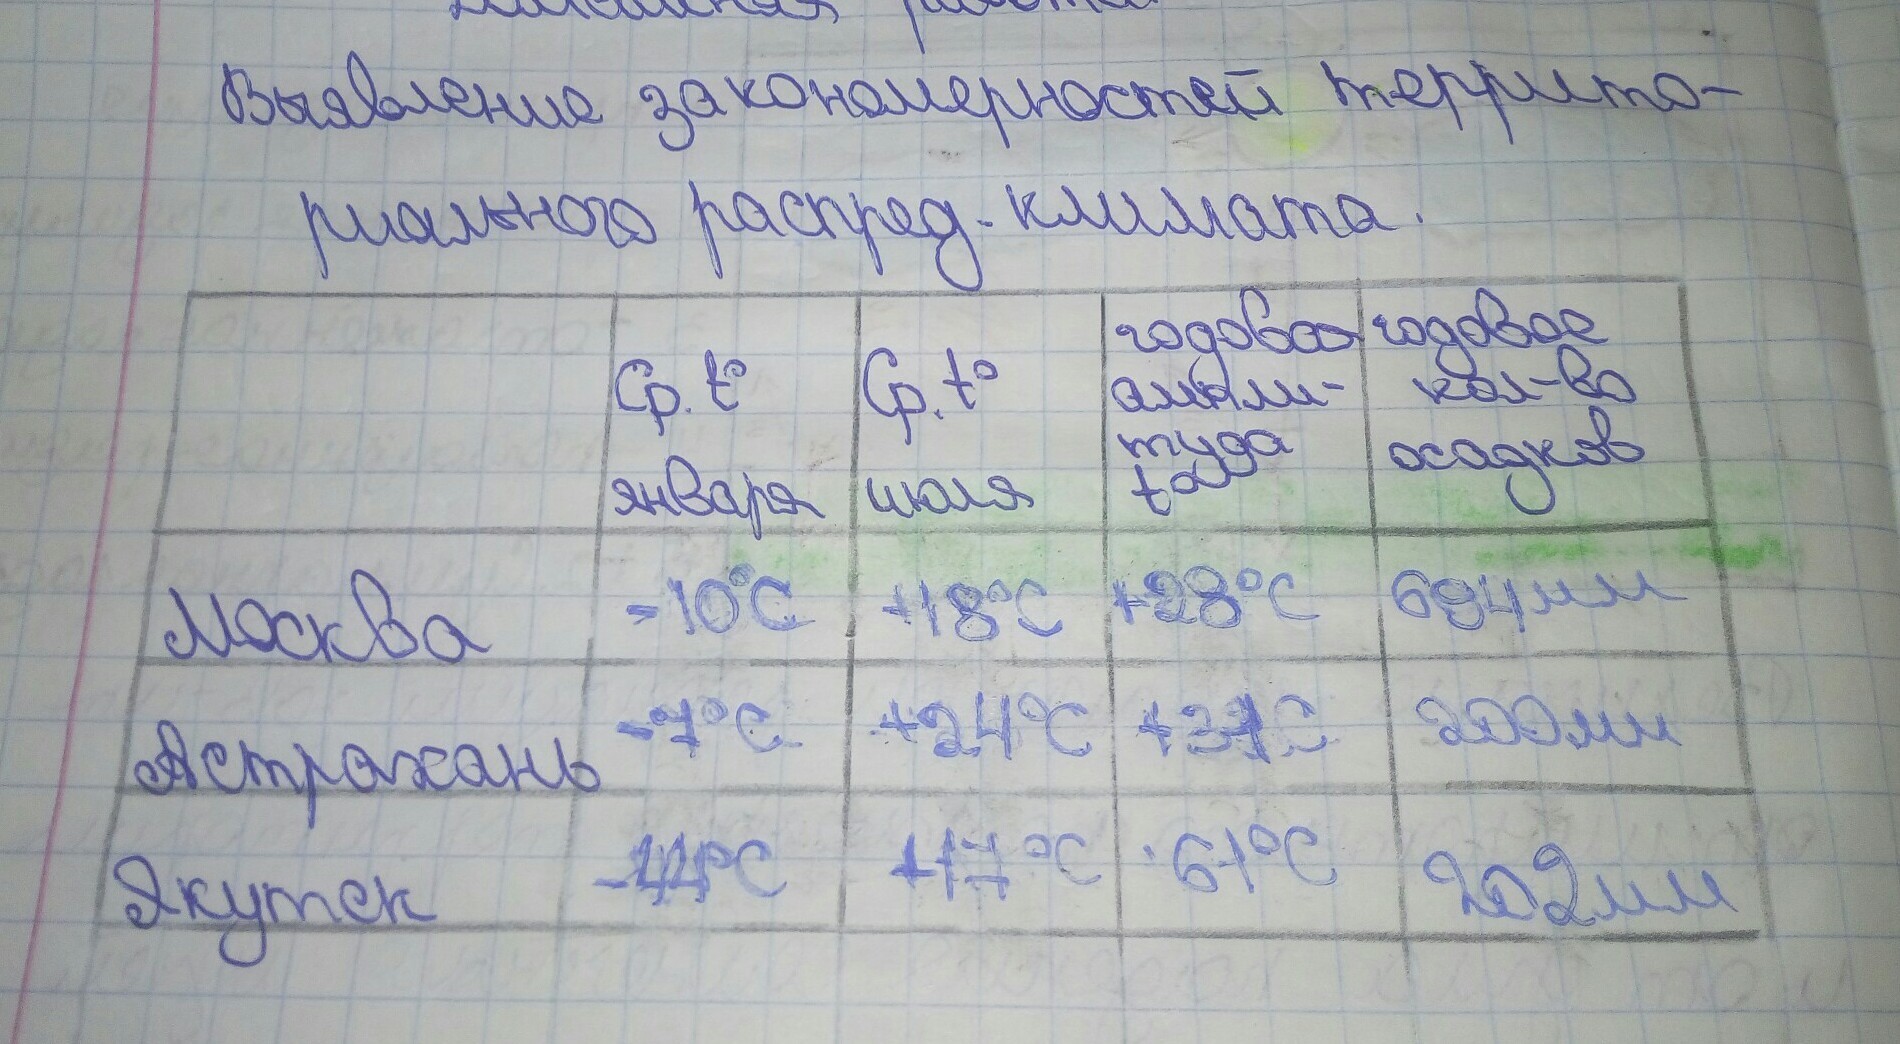 Домашняя работа
Выявление закономерностей террито-
риального распред. климата.
Ср. t° января
Ср. t° июля
годовая ампли-туда t°
годовое кол-во осадков
Москва -10°С +18°С +28°С 694мм
Астрахань -7°С +24°С +31С 200мм
Якутск -44°С +17°С 61°С 202мм